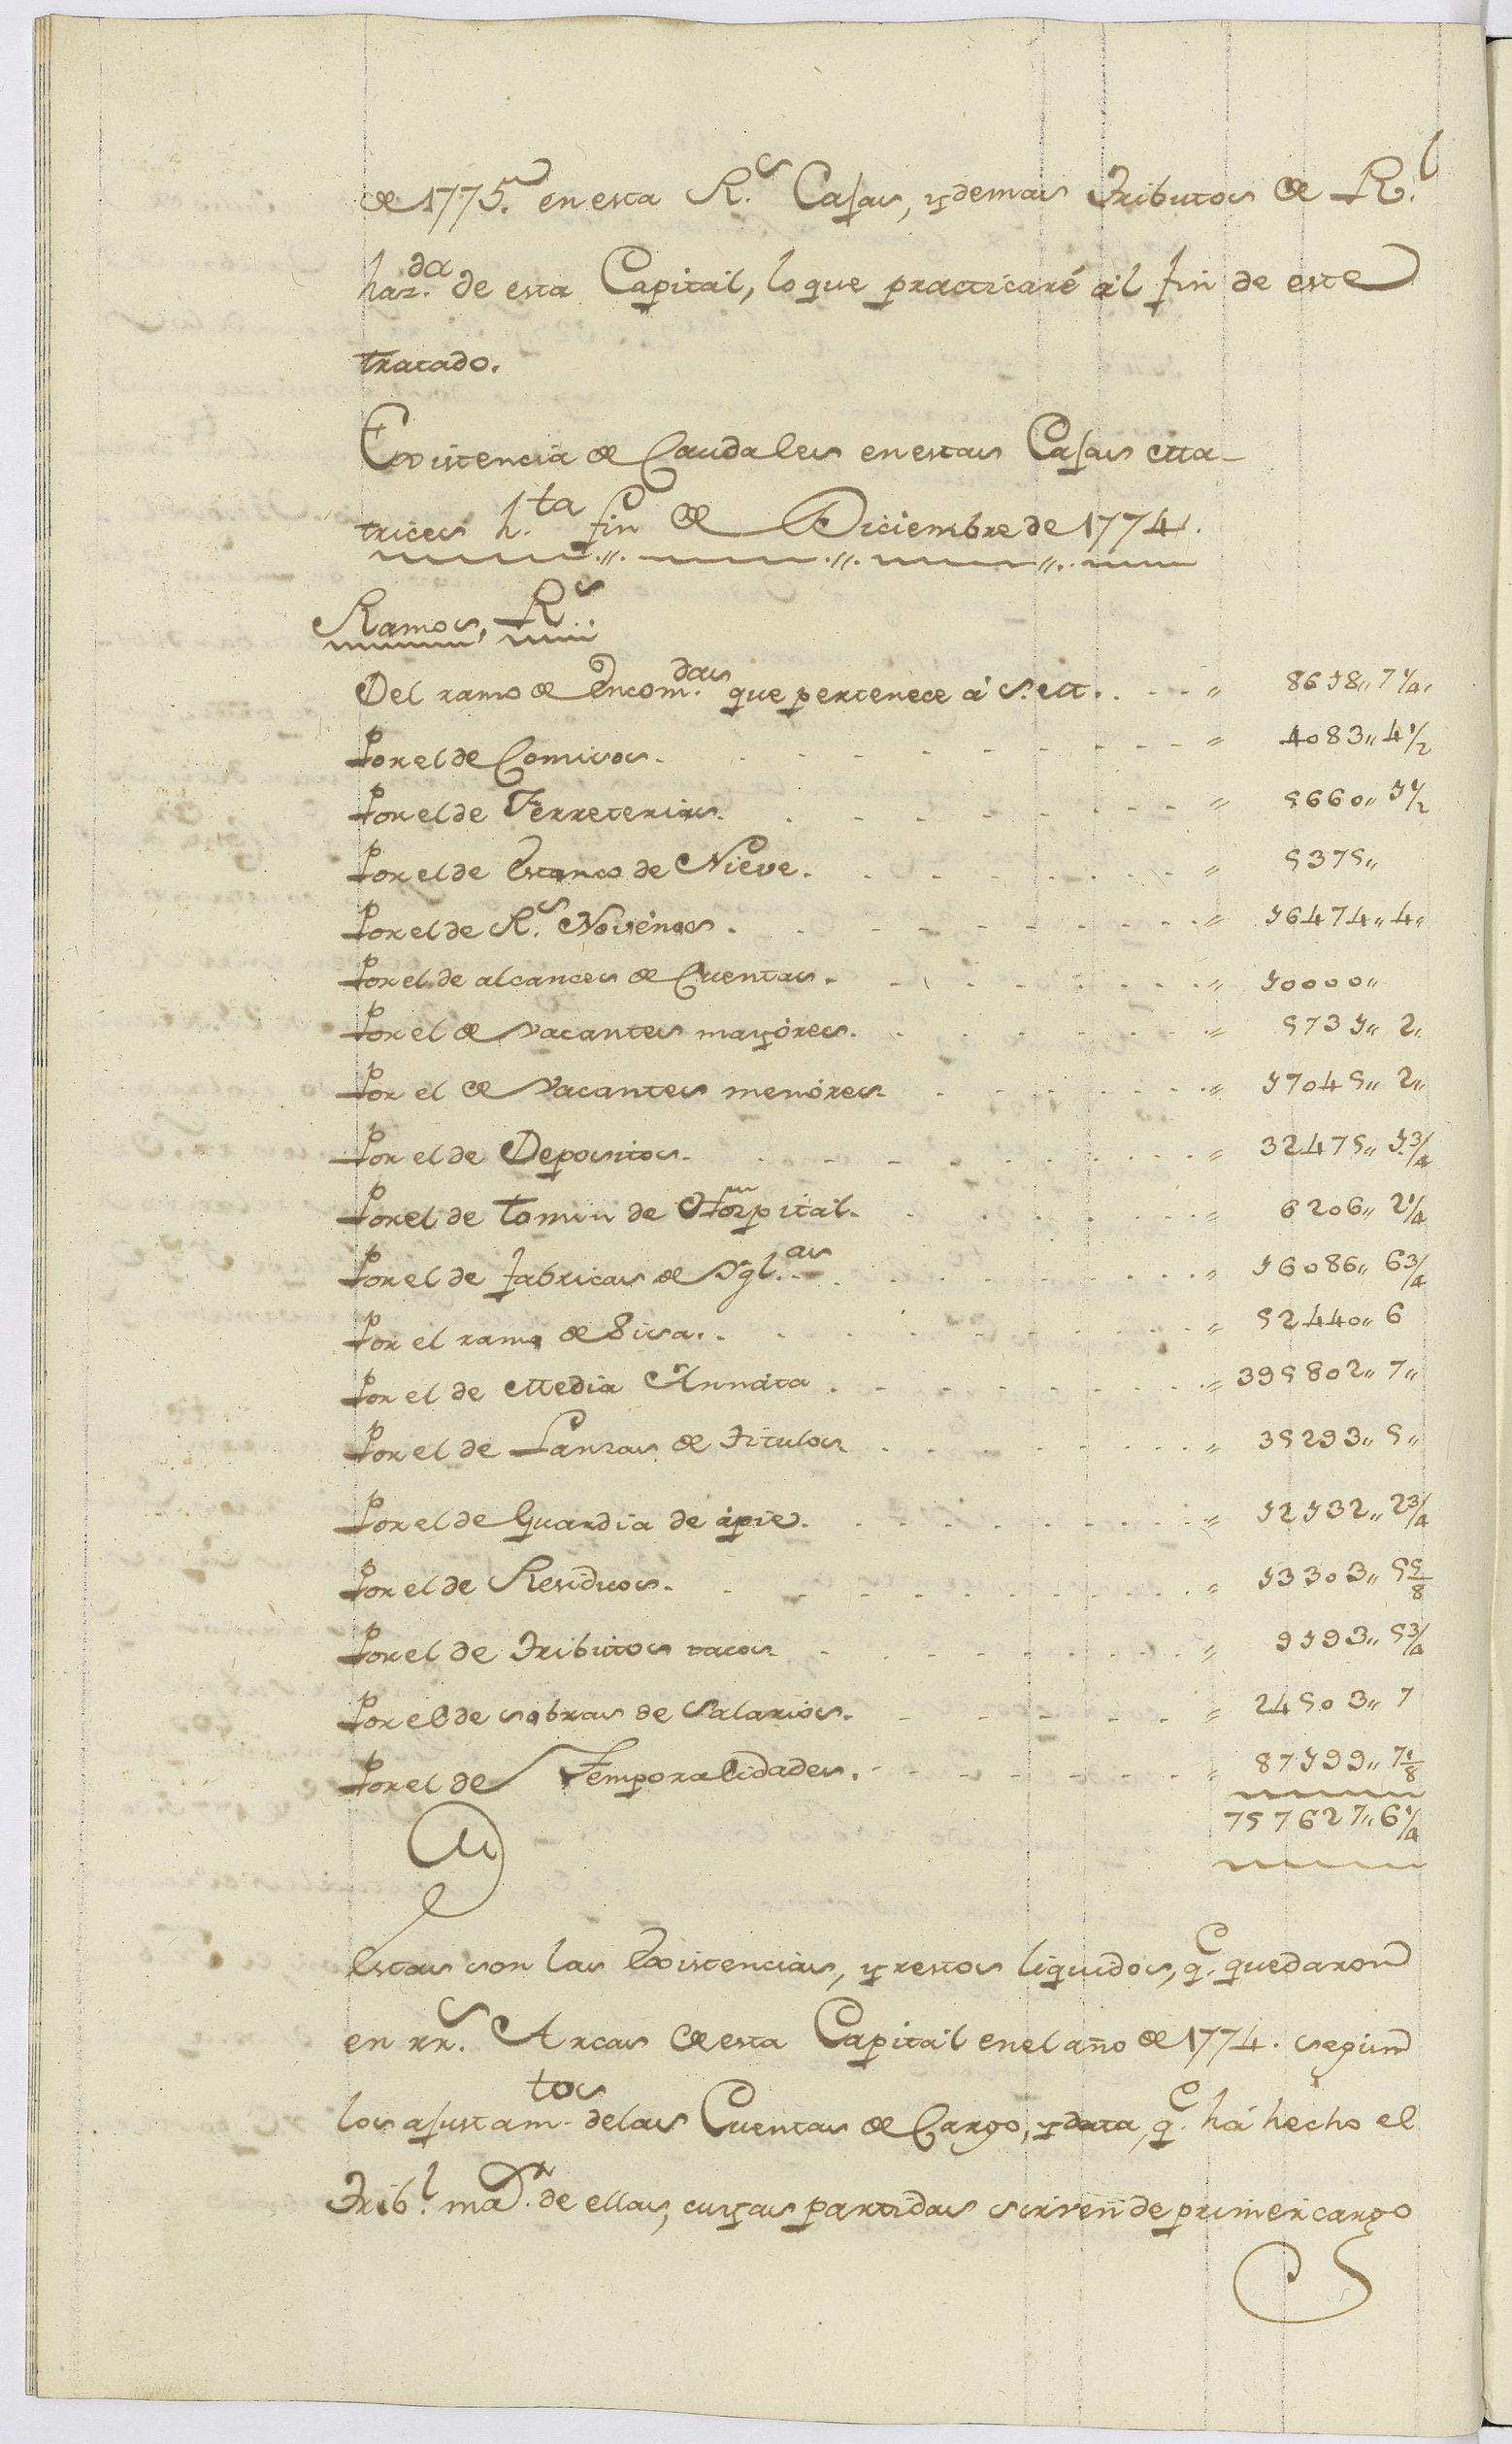 de 1775. en esta R.s Casas, y demas Tributos de R.l
haz.da de esta Capital, lo que practicaré ál fin de este
tratado.
Existencia de Caudales en estas Casas Ma-
trices h.ta fin de Diciembre de 1774.
Ramos, R.s
Del ramo de Encom.das que pertenece á S. M. . . - - " 8618,, 7 1/4,,
Por el de Comisos. - - - - - - " 4083,, 4 1/2
Por el de Ferreterias. - - - - - - " 5660,, 1 1/2
Por el de Estanco de Nieve. - - - - - - " 5375,,
Por el de R.s Novénos. - - - - - - " 16474,, 4,,
Por el de alcances de Cuentas. - - - - - - " 10000,,
Por el de vacantes mayóres. - - - - - - " 5731,, 2,,
Por el de Vacantes menóres. - - - - - - " 17045,, 2,,
Por el de Depositos. - - - - - - " 32475,, 1 3/4
Por el de tomin de Hospital. - - - - - - " 6206,, 2 1/4
Por el de fabricas de Ygl.as - - - - - - " 16086,, 6 3/4
Por el ramo de Sisa. - - - - - - " 52440,, 6
Por el de Media Annáta. - - - - - - " 395802,, 7,,
Por el de Lanzas de Titulos. - - - - - - " 35293,, 5,,
Por el de Guardia de ápie. - - - - - - " 12132,, 2 3/4
Por el de Residuos. - - - - - - " 13303,, 5 5/8
Por el de Tributos vacos. - - - - - - " 9193,, 5 3/4
Por el de sobras de Salarios. - - - - - - " 24503,, 7
Por el de Temporalidades. - - - - - - " 87199,, 7 1/8
757627,, 6 1/4
Estas son las Existencias, y restos liquidos, q.e quedaron
en rr.s Arcas de esta Capital en el año de 1774. segun
los ajustam.tos de las Cuentas de Cargo, y data, q.e há hecho el
Trib.l ma.r de ellas, cuyas partidas sirven de primer cargo